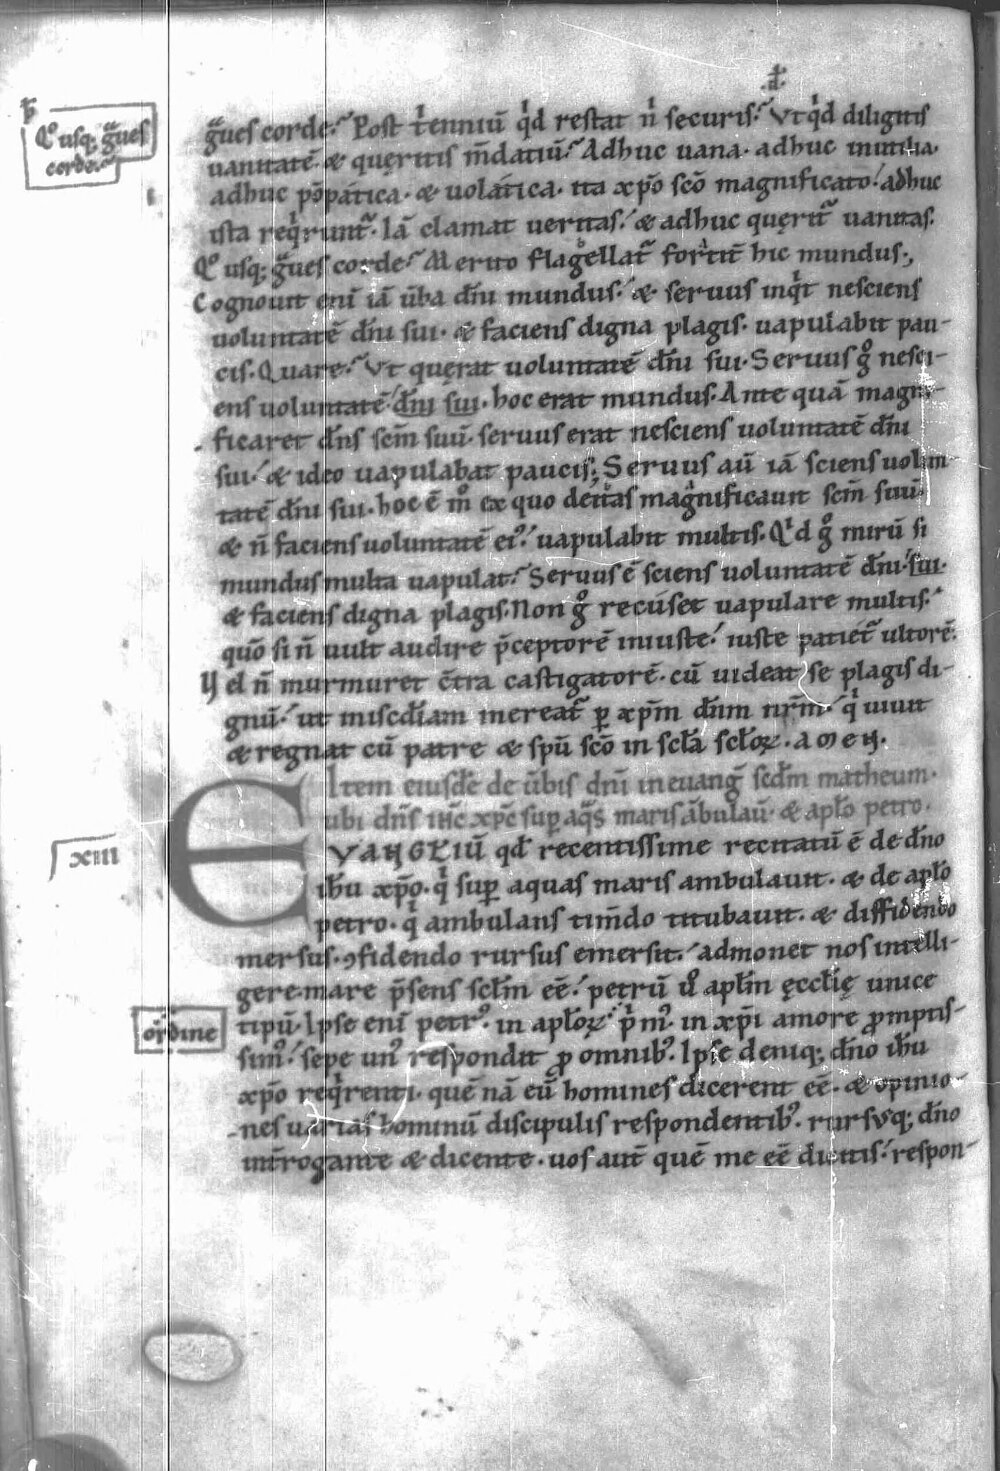 Qͦ usq; g̃ues
corde.
g̃ues corde. Post t̾enniū qⁱd restat nⁱ securis. Vtqⁱd diligitis
uanitatē. & quęritis m̄datiū. Adhuc uana. adhuc inutilia.
adhuc pōpatica. & uolatica. ita xp̄o scō magnificato. adhuc
ista reqⁱrunt̃. Iā clamat ueritas. & adhuc quęrit̃ uanitas.
Qͦ usq; g̃ues corde. Merito flagellat̃ fortit̄ hic mundus.,
Cognouit enī iā ūba dn̄i mundus. & seruus inqⁱt nesciens
uoluntatē dn̄i sui. & faciens digna plagis. uapulabit pau-
cis. Quare. Vt quęrat uoluntatē dn̄i sui. Seruus gͦ nesci-
ens uoluntatē dn̄i sui. hoc erat mundus. Ante quā magni-
ficaret dn̄s scm̄ suū. seruus erat nesciens uoluntatē dn̄i
sui. & ideo uapulabat paucis; Seruus aū iā sciens uolun-
tatē dn̄i sui. hoc ē mͦ ex quo deitas magnificauit scm̄ suū.
& n̄ faciens uoluntatē eiꝰ. uapulabit multis. Qⁱd gͦ mirū si
mundus multa uapulat. Seruus ē sciens uoluntatē dn̄i sui.
& faciens digna plagis. Non gͦ recuset uapulare multis.
quō si n̄ uult audire p̄ceptorē iniuste. iuste patiet̃ ultorē.
Vel n̄ murmuret c̄tra castigatorē. cū uideat se plagis di-
gnū. ut miscd̄iam mereat̃ ꝑ xp̄m dn̄m nr̄m. qⁱ uiuit
& regnat cū patre & sp̄u scō in scl̄a scl̄oꝝ. AMEN.
Item eiusdē de ūbis dn̄i in euang̃ scdm̄ matheum.
ubi dn̄s ih̄c xp̄c suꝑ aq̃s maris ābulaū. & apl̄o petro.
xiii
EVANGELIŪ qd̄ recentissime recitatū ē de dn̄o
ih̄u xp̄o. qⁱ suꝑ aquas maris ambulauit. & de apl̄o
petro. qⁱ ambulans tim̄do titubauit. & diffidendo
mersus. ꝯfidendo rursus emersit. admonet nos intelli-
gere mare p̄sens scl̄m eē. petrū uͦ apl̄m ęccl̄ię unice
ordine
tipū. Ipse enī petrꝰ. in apl̄oꝝ pⁱmꝰ. in xp̄i amore ꝓmptis-
simꝰ. sepe unꝰ respondit ꝓ omnibꝰ. Ipse deniq; dn̄o ih̄u
xp̄o reqⁱrenti. quē nā eū homines dicerent eē. & opinio-
nes uarias hominū discipulis respondentibꝰ. rursusq; dn̄o
int̄rogante & dicente. uos aut̄ quē me eē dicitis. respon-